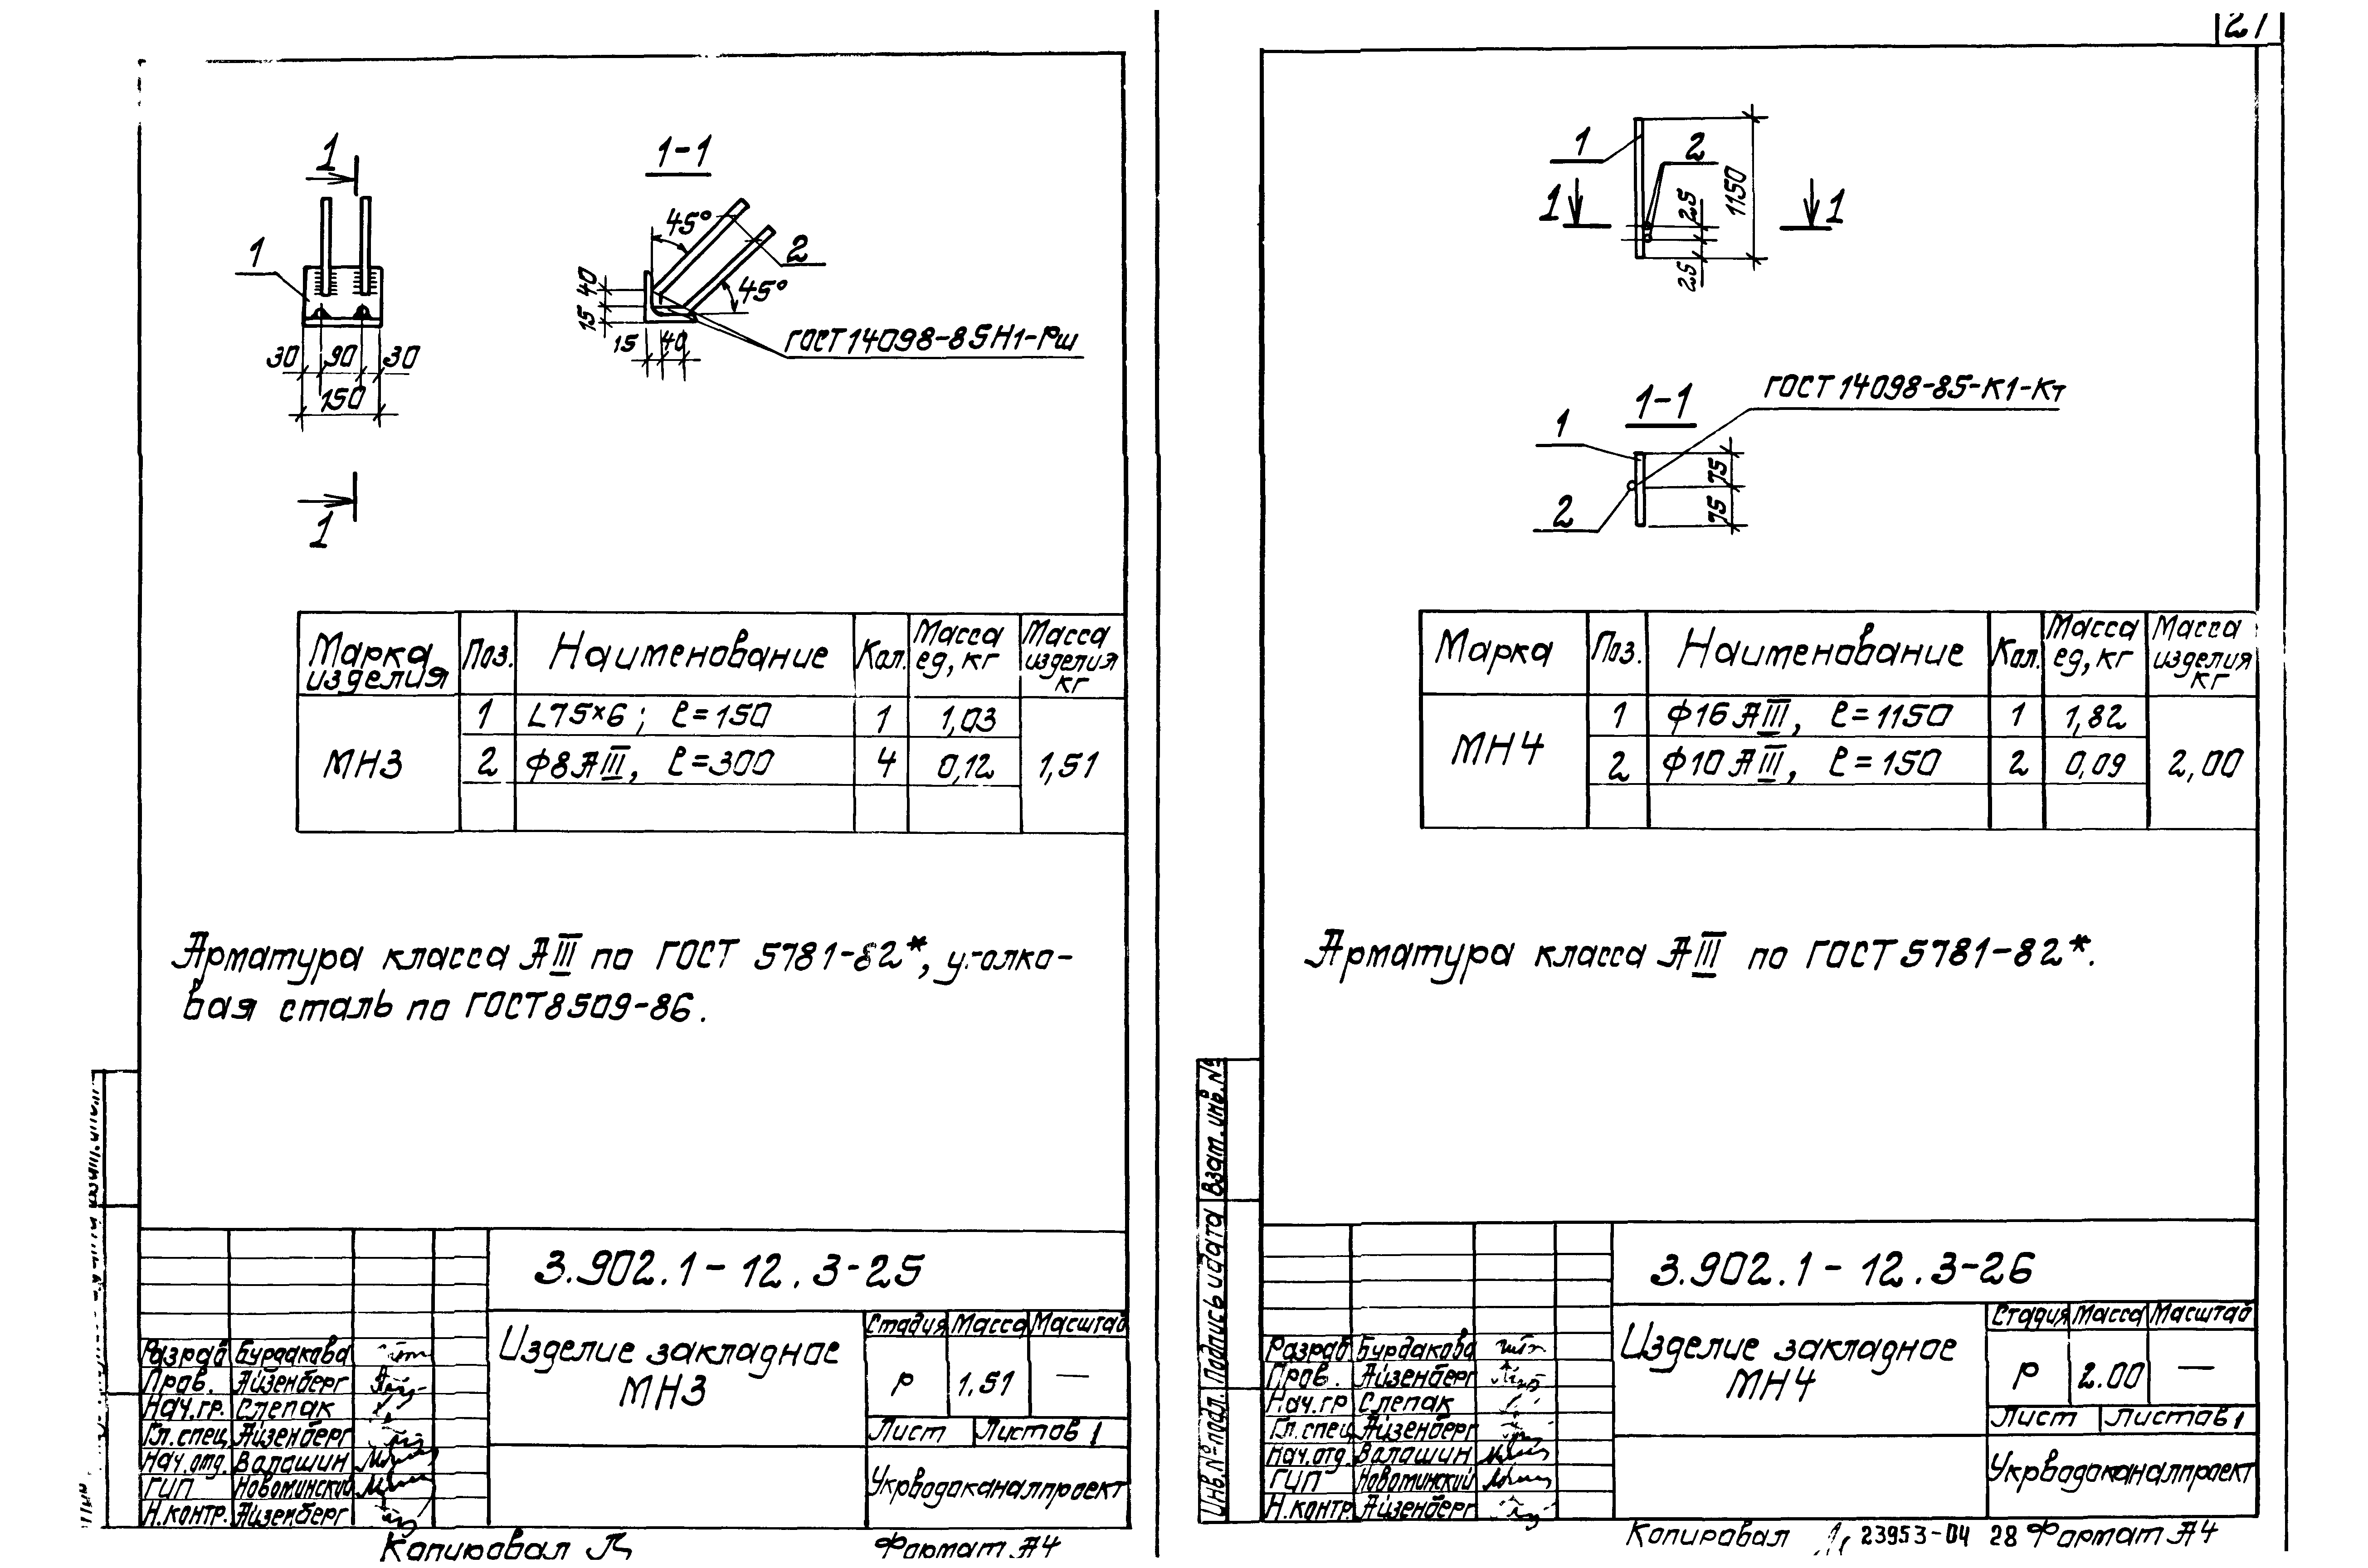 1
1-1
45°
1
2
40
15
45°
ГОСТ14098-85Н1-Рш
15 40
30 90 30
150
1
Марка изделия Поз. Наименование Кол. Масса ед, кг Масса изделия кг
МН3
1 L75×6; ℓ=150 1 1,03
2 ф8АIII, ℓ=300 4 0,12 1,51
Арматура класса АIII по ГОСТ 5781-82*, уголко-
вая сталь по ГОСТ8509-86.
3.902.1-12.3-25
Изделие закладное
МН3
Стадия Масса Масштаб
Р 1.51 —
Лист Листов 1
Укрводоканалпроект
Разраб Бурдакова
Пров. Айзенберг
Нач.гр. Слепак
Гл.спец Айзенберг
Нач.отд. Валашин
ГИП Новоминский
Н.контр. Айзенберг
Копировал
Формат А4
1
2
1150
25
25
1 1
ГОСТ 14098-85-К1-Кт
1-1
1
2
75
75
Марка Поз. Наименование Кол. Масса ед, кг Масса изделия кг
МН4
1 ф16 АIII, ℓ=1150 1 1,82
2 ф10 АIII, ℓ=150 2 0,09 2,00
Арматура класса АIII по ГОСТ 5781-82*.
Взам.инв.№
Подпись и дата
Инв.№подл.
3.902.1-12.3-26
Изделие закладное
МН4
Стадия Масса Масштаб
Р 2.00 —
Лист Листов 1
Укрводоканалпроект
Разраб Бурдакова
Пров. Айзенберг
Нач.гр Слепак
Гл.спец Айзенберг
Нач.отд. Валашин
ГИП Новоминский
Н.контр. Айзенберг
Копировал 23953-04 28 Формат А4